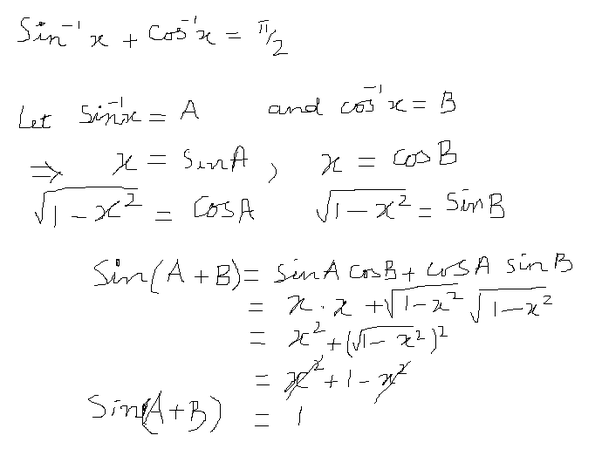 Sin⁻¹x + Cos⁻¹x = π/2
Let Sin⁻¹x = A and cos⁻¹x = B
⇒ x = SinA, x = cosB
√(1-x²) = CosA √(1-x²) = SinB
Sin(A+B) = sinA cosB + cosA sinB
= x.x + √(1-x²) √(1-x²)
= x² + (√(1-x²))²
= x² + 1 - x²
Sin(A+B) = 1